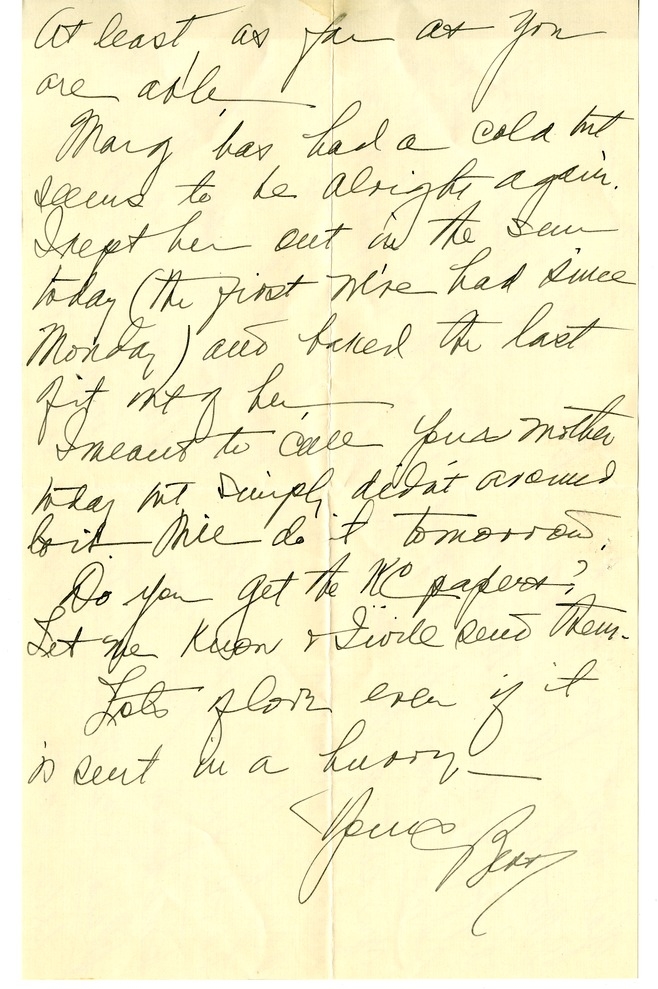 At least, as far as you
are able.
Marg has had a cold but
seems to be alright again.
I kept her out in the sun
today (the first we've had since
Monday) and baked the last
out of her.
I meant to call your mother
today but simply didn't around
to it. Will do it tomorrow.
Do you get the KC papers?
Let me know & I will send them.
Lots of love even if it
is sent in a hurry—
Yours Bess